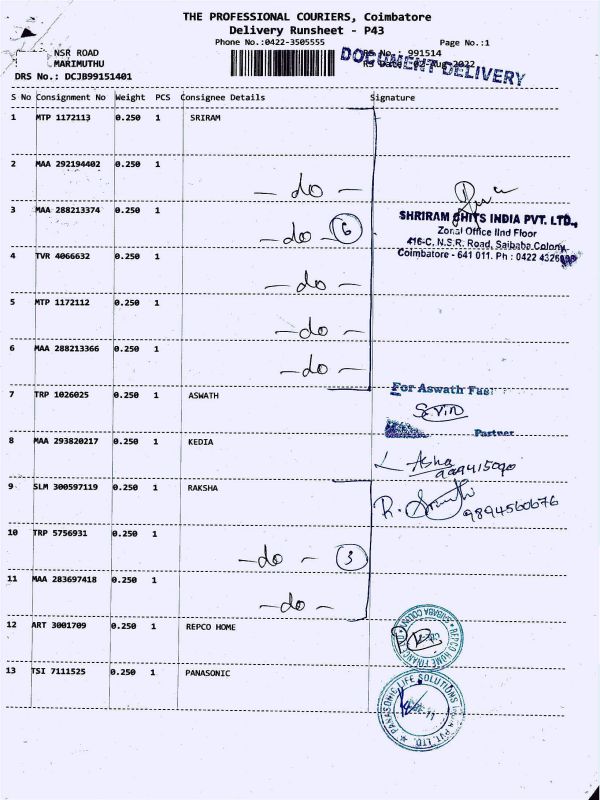 THE PROFESSIONAL COURIERS, Coimbatore
Delivery Runsheet - P43
Phone No.:0422-3505555
Page No.:1
NSR ROAD
MARIMUTHU
DRS No.: DCJB99151401
RS No.: 991514
RS Date: 02-Aug-2022
DOCUMENT DELIVERY
S No Consignment No Weight PCS Consignee Details Signature
1 MTP 1172113 0.250 1 SRIRAM
2 MAA 292194402 0.250 1
- do -
3 MAA 288213374 0.250 1
- do - 6
SHRIRAM CHITS INDIA PVT. LTD.,
Zonal Office IInd Floor
416-C, N.S.R. Road, Saibaba Colony,
Coimbatore - 641 011. Ph : 0422 4326
4 TVR 4066632 0.250 1
- do -
5 MTP 1172112 0.250 1
- do -
6 MAA 288213366 0.250 1
- do -
7 TRP 1026025 0.250 1 ASWATH
For Aswath
Partner
8 MAA 293820217 0.250 1 KEDIA
Asha
9 SLM 300597119 0.250 1 RAKSHA
R.
9894560676
10 TRP 5756931 0.250 1
- do - 3
11 MAA 283697418 0.250 1
- do -
12 ART 3001709 0.250 1 REPCO HOME
REPCO HOME FINANCE
SAIBABA COLONY
13 TSI 7111525 0.250 1 PANASONIC
PANASONIC LIFE SOLUTIONS INDIA PVT. LTD.